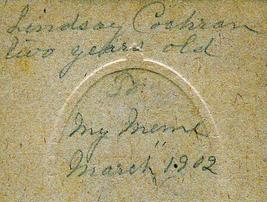 Lindsay Cochran
two years old
To
My Meme
March, 1902